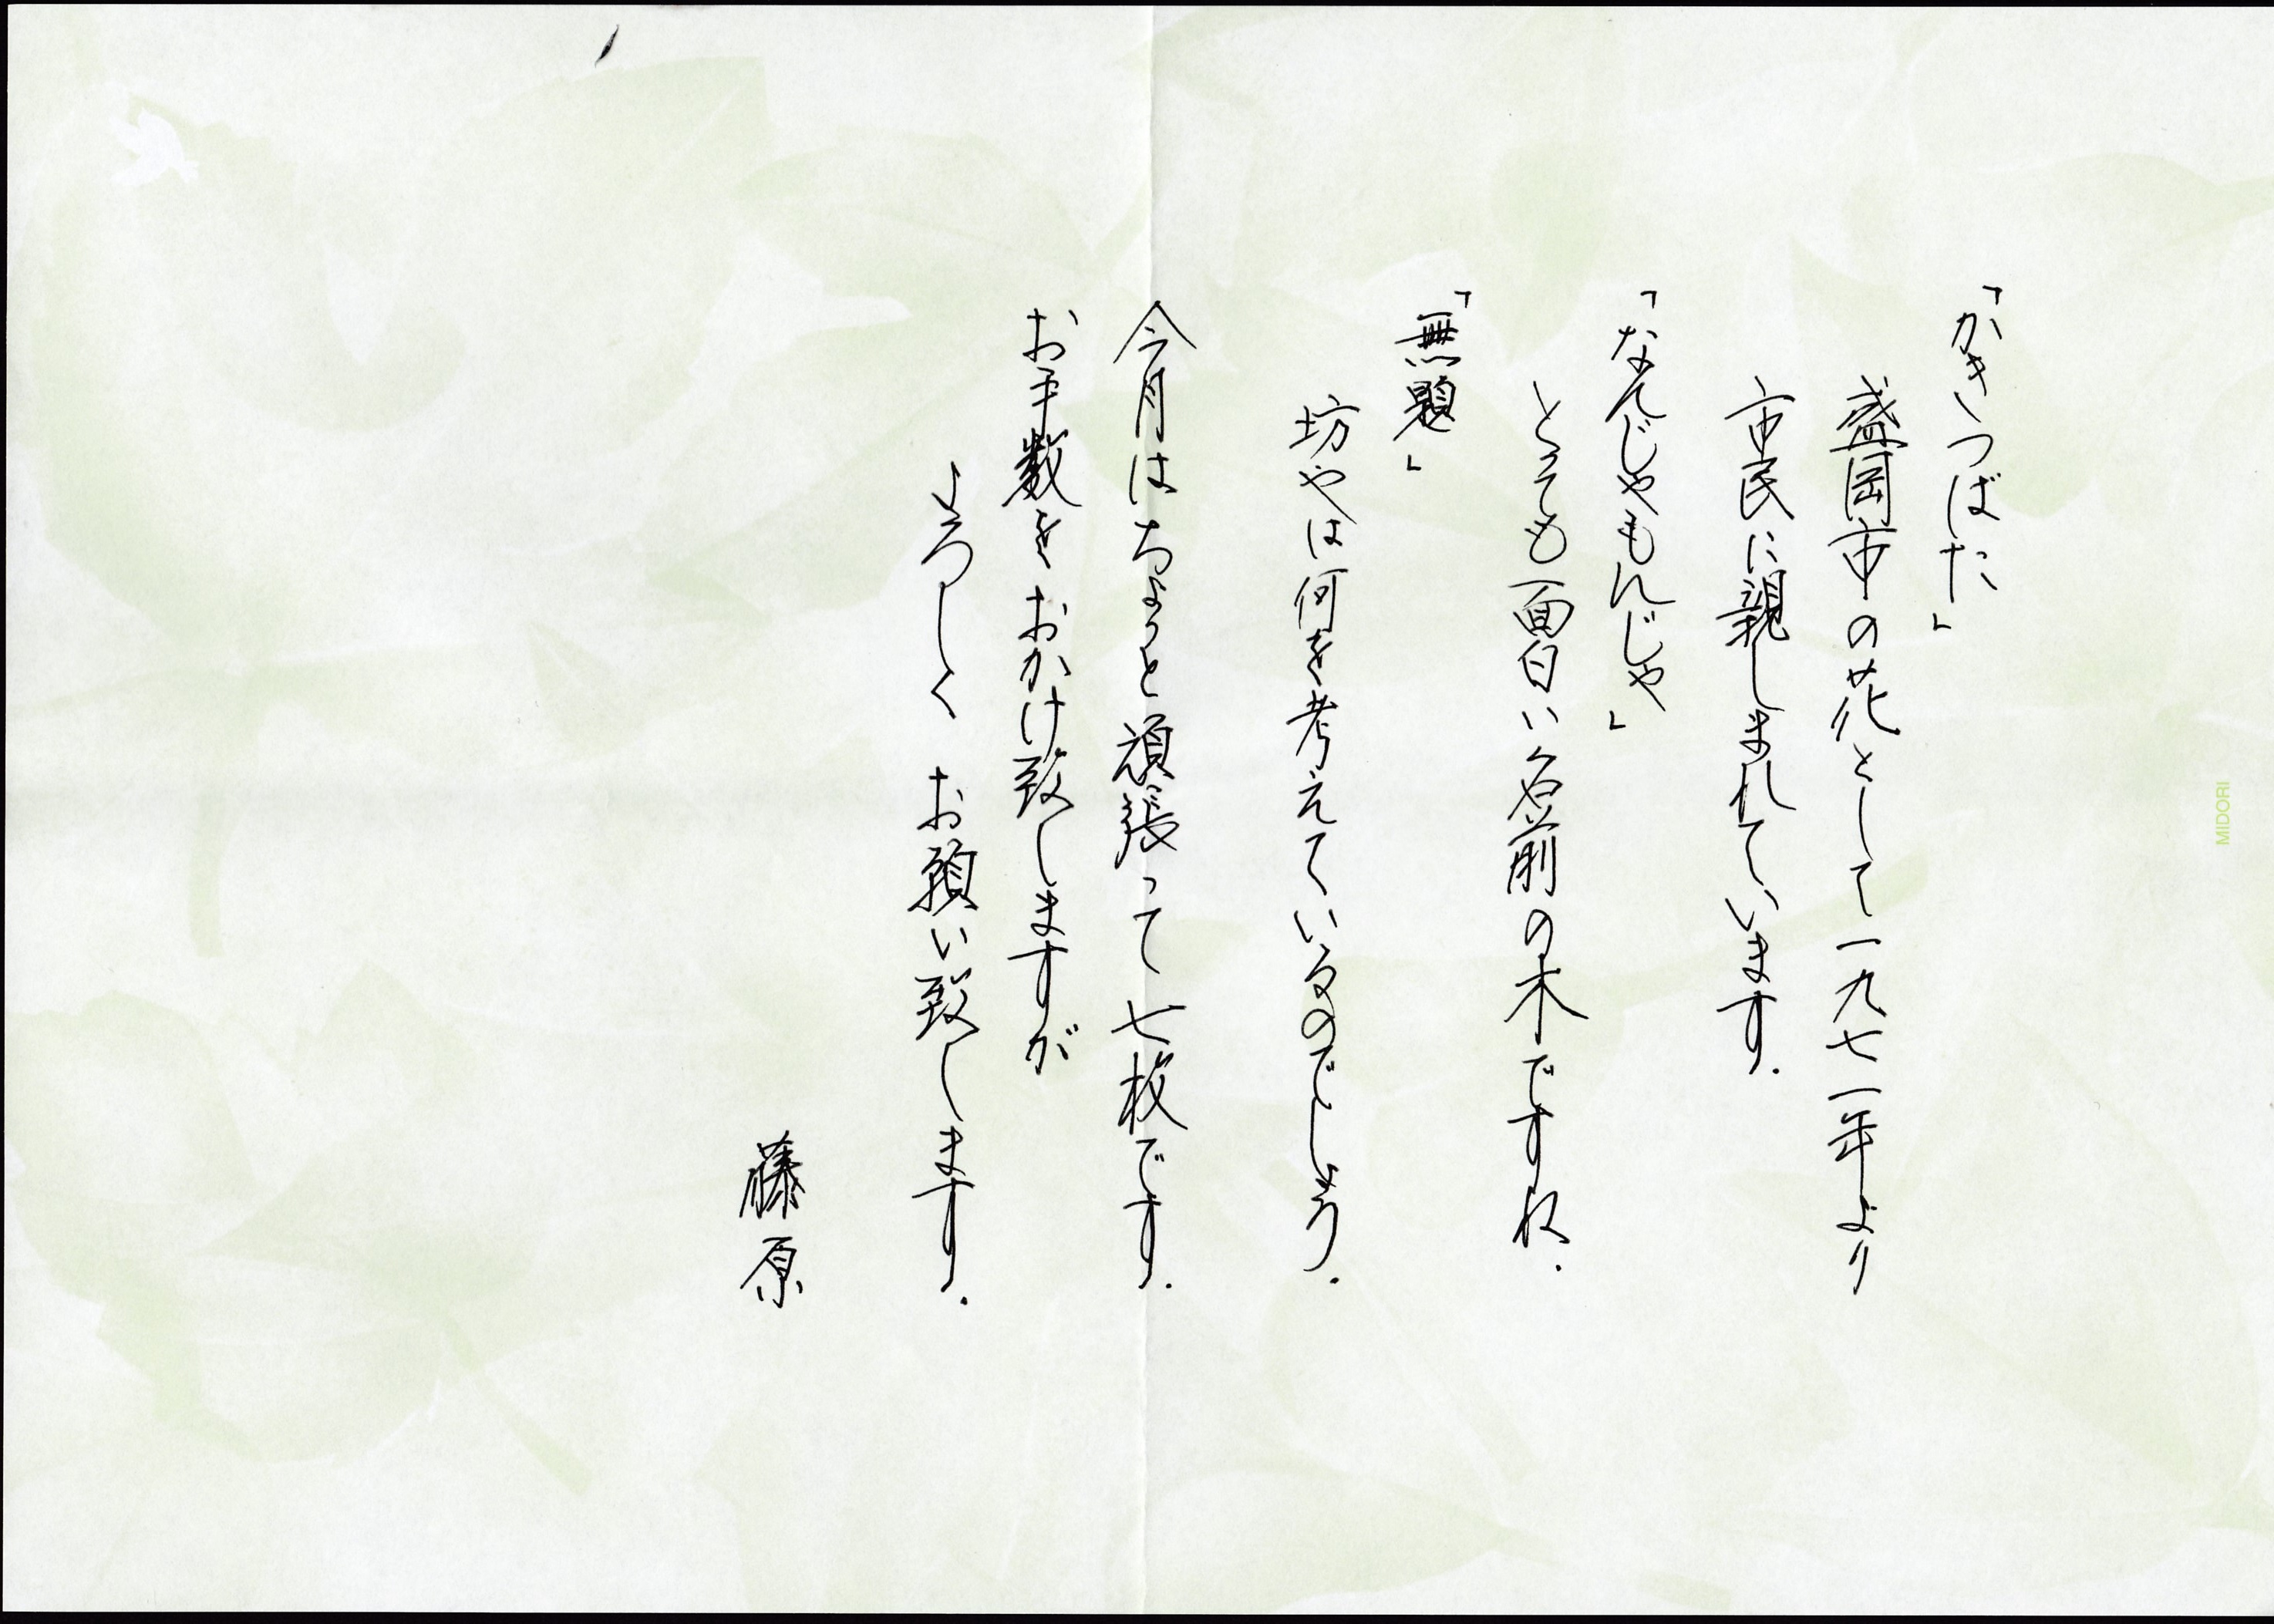 「かきつばた」
盛岡市の花として一九七一年より
市民に親しまれています.
「なんじゃもんじゃ」
とても面白い名前の木ですね.
「無題」
坊やは何を考えているのでしょう.
今月はちょっと頑張って七枚です.
お手数をおかけ致しますが
よろしくお願い致します.
藤原
MIDORI